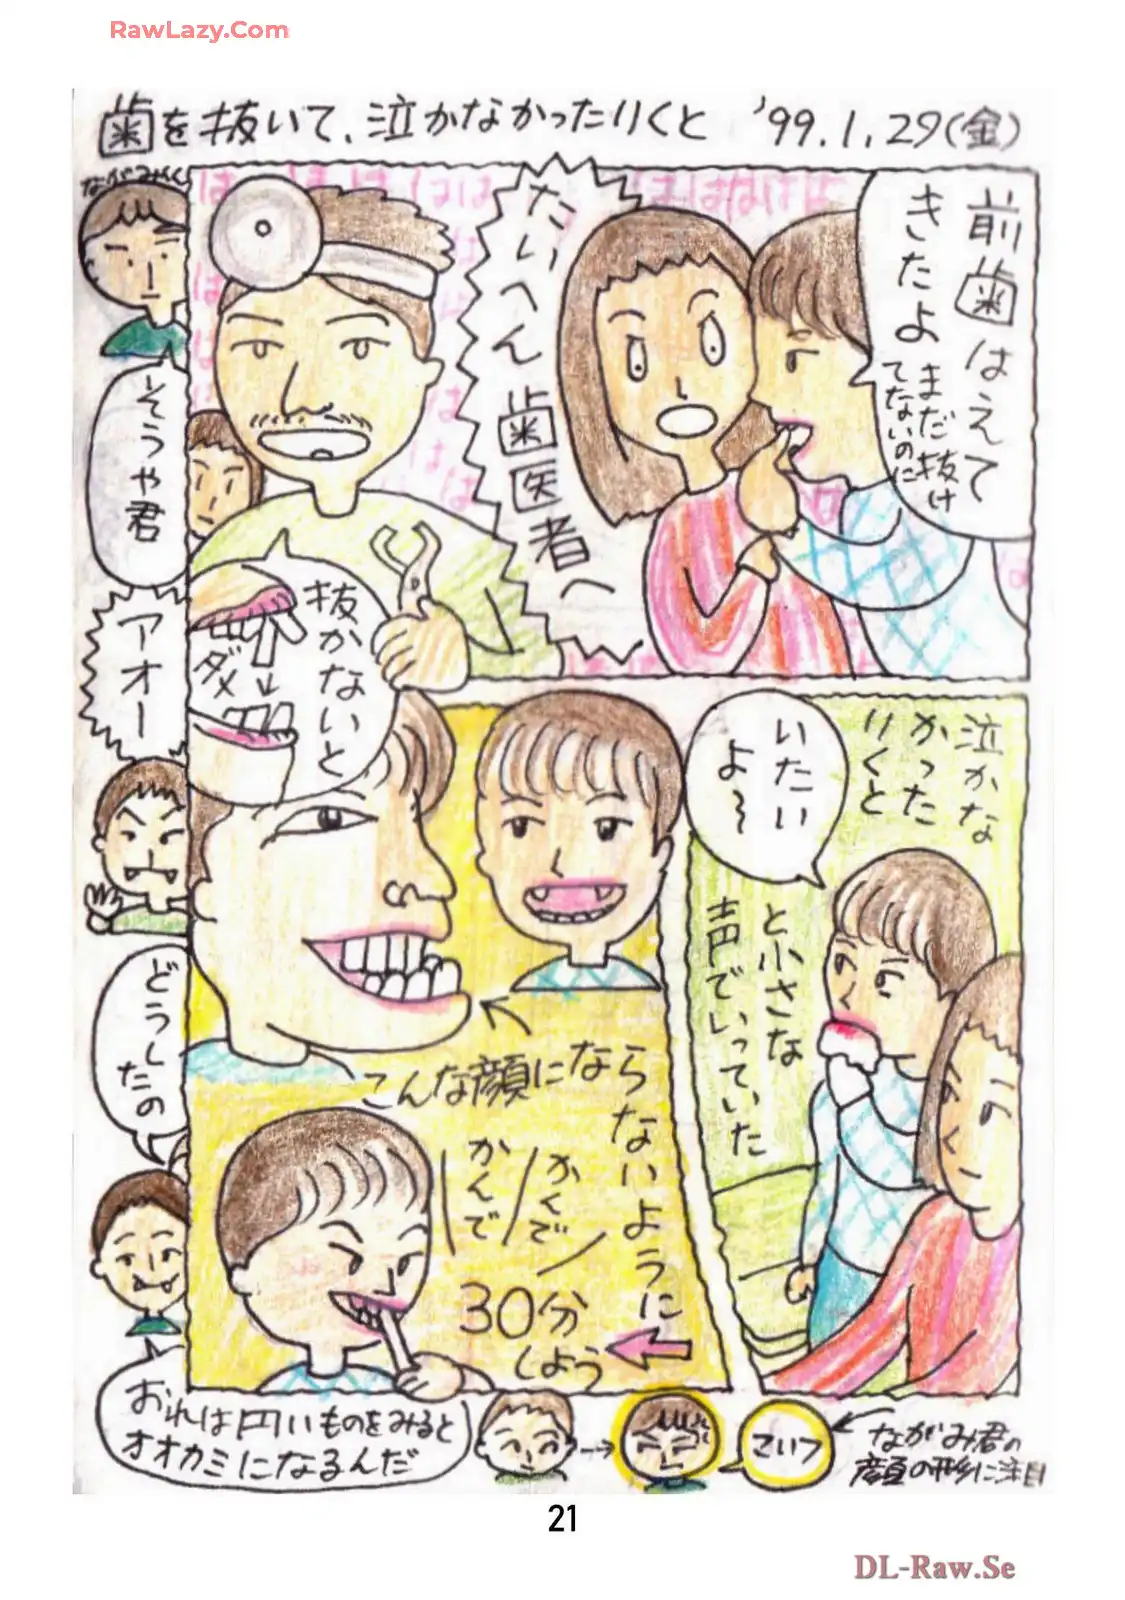 RawLazy.Com
歯を抜いて、泣かなかったりくと '99.1.29(金)
前歯はえて
きたよ
まだ抜け
てないのに
たいへん歯医者へ
抜かないと
ダメ
泣かな
かった
りくと
いたい
よ〜
と小さな
声でいっていた
こんな顔にならないように
かんで
かくで
30分
しよう
ながみくん
そうや君
アオー
どうしたの
おれは円いものをみると
オオカミになるんだ
こいつ
ながみ君の
顔の形に注目
21
DL-Raw.Se